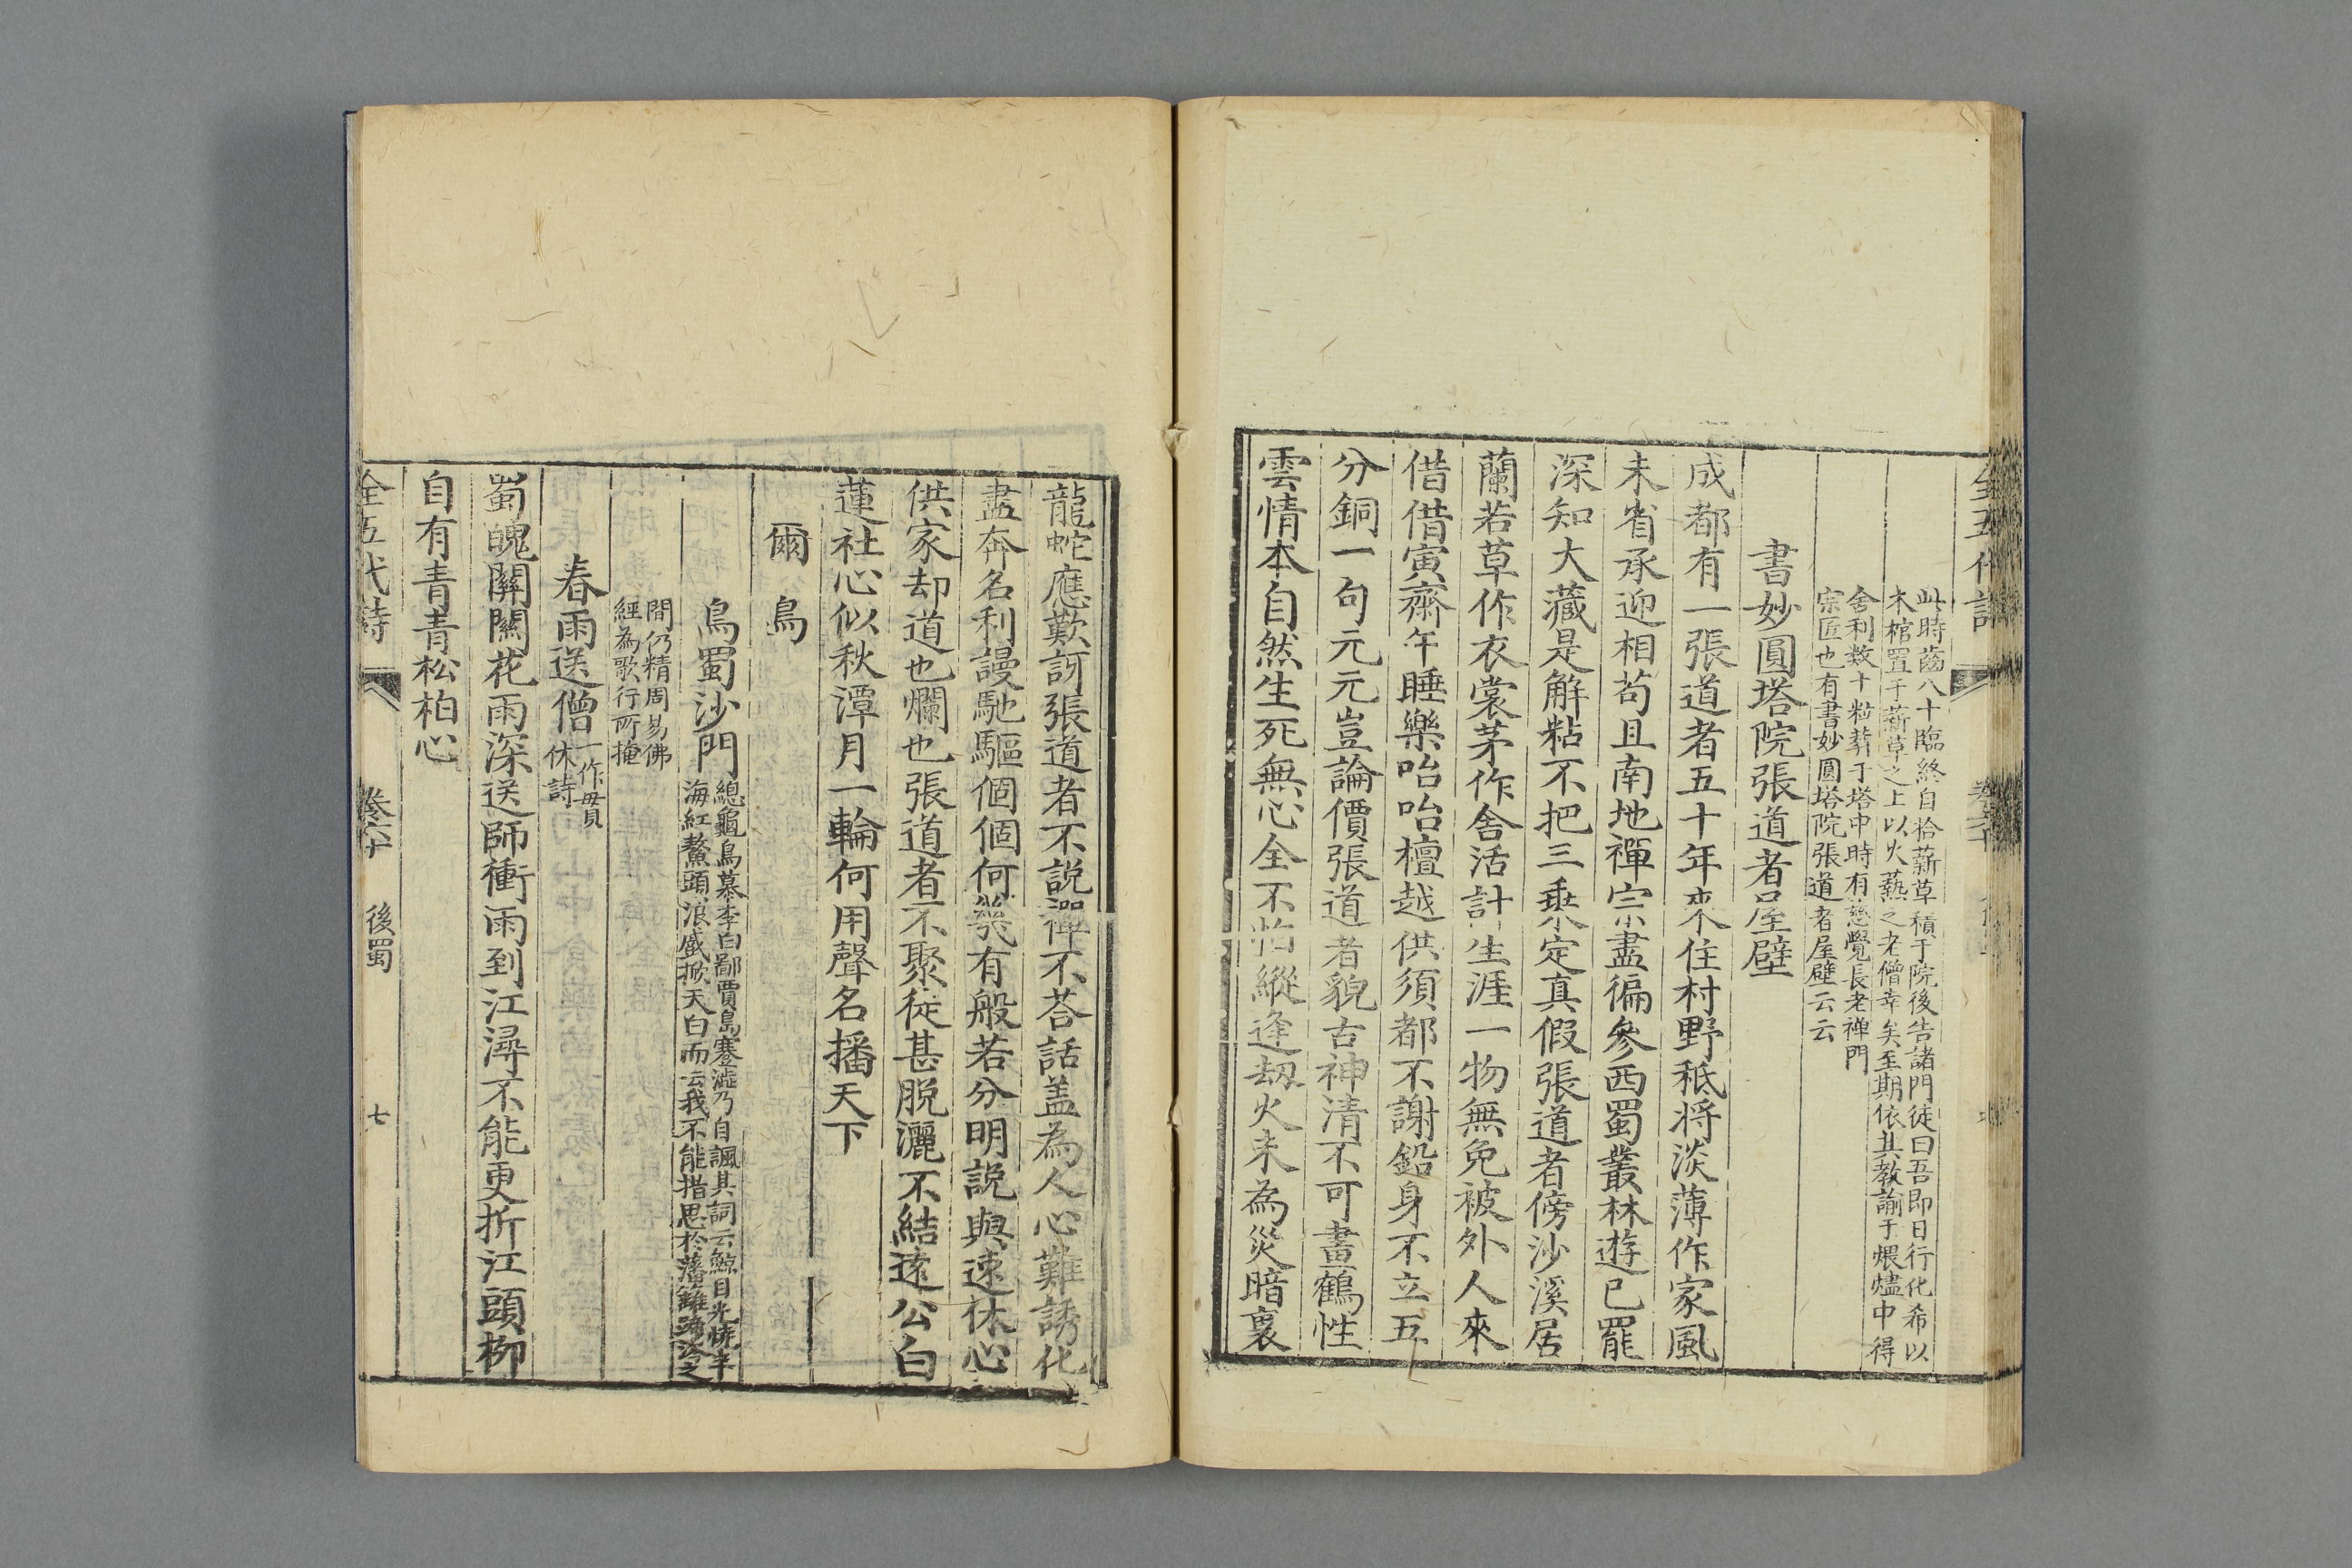 全五代詩
此時齒八十臨終自拾薪草積于院後告諸門徒曰吾即日行化希以
木棺置于薪草之上以火爇之老僧幸矣至期依其教諭于煨燼中得
舍利数十粒葬于塔中時有慈覺長老禅門
宗匠也有書妙圓塔院張道者屋壁云云
書妙圓塔院張道者屋壁
成都有一張道者五十年來住村野秪将淡薄作家風
未省承迎相苟且南地禪宗盡徧參西蜀叢林遊已罷
深知大藏是解粘不把三乗定真假張道者傍沙溪居
蘭若草作衣裳茅作舍活計生涯一物無免被外人來
借借寅齋午睡樂咍咍檀越供須都不謝鉛身不立五
分銅一句元元豈論價張道者貌古神清不可畫鶴性
雲情本自然生死無心全不怕縱逢刼火未為災暗裏
龍蛇應歎訝張道者不説禪不荅話盖為人心難誘化
盡奔名利謾馳驅個個何㡬有般若分明説與速休心
供家却道也爛也張道者不聚徒甚脱灑不結遠公白
蓮社心似秋潭月一輪何用聲名播天下
爾鳥
鳥蜀沙門
總龜鳥慕李白鄙賈島蹇澁乃自諷其詞云鯨目光燒半
海紅鰲頭浪蹙掀天白而云我不能措思於藩籬蹄涔之
間仍精周易佛
經為歌行所掩
春雨送僧
一作毌貫
休詩
蜀魄關關花雨深送師衝雨到江潯不能更折江頭栁
自有青青松柏心
全五代詩
卷六十
後蜀
七